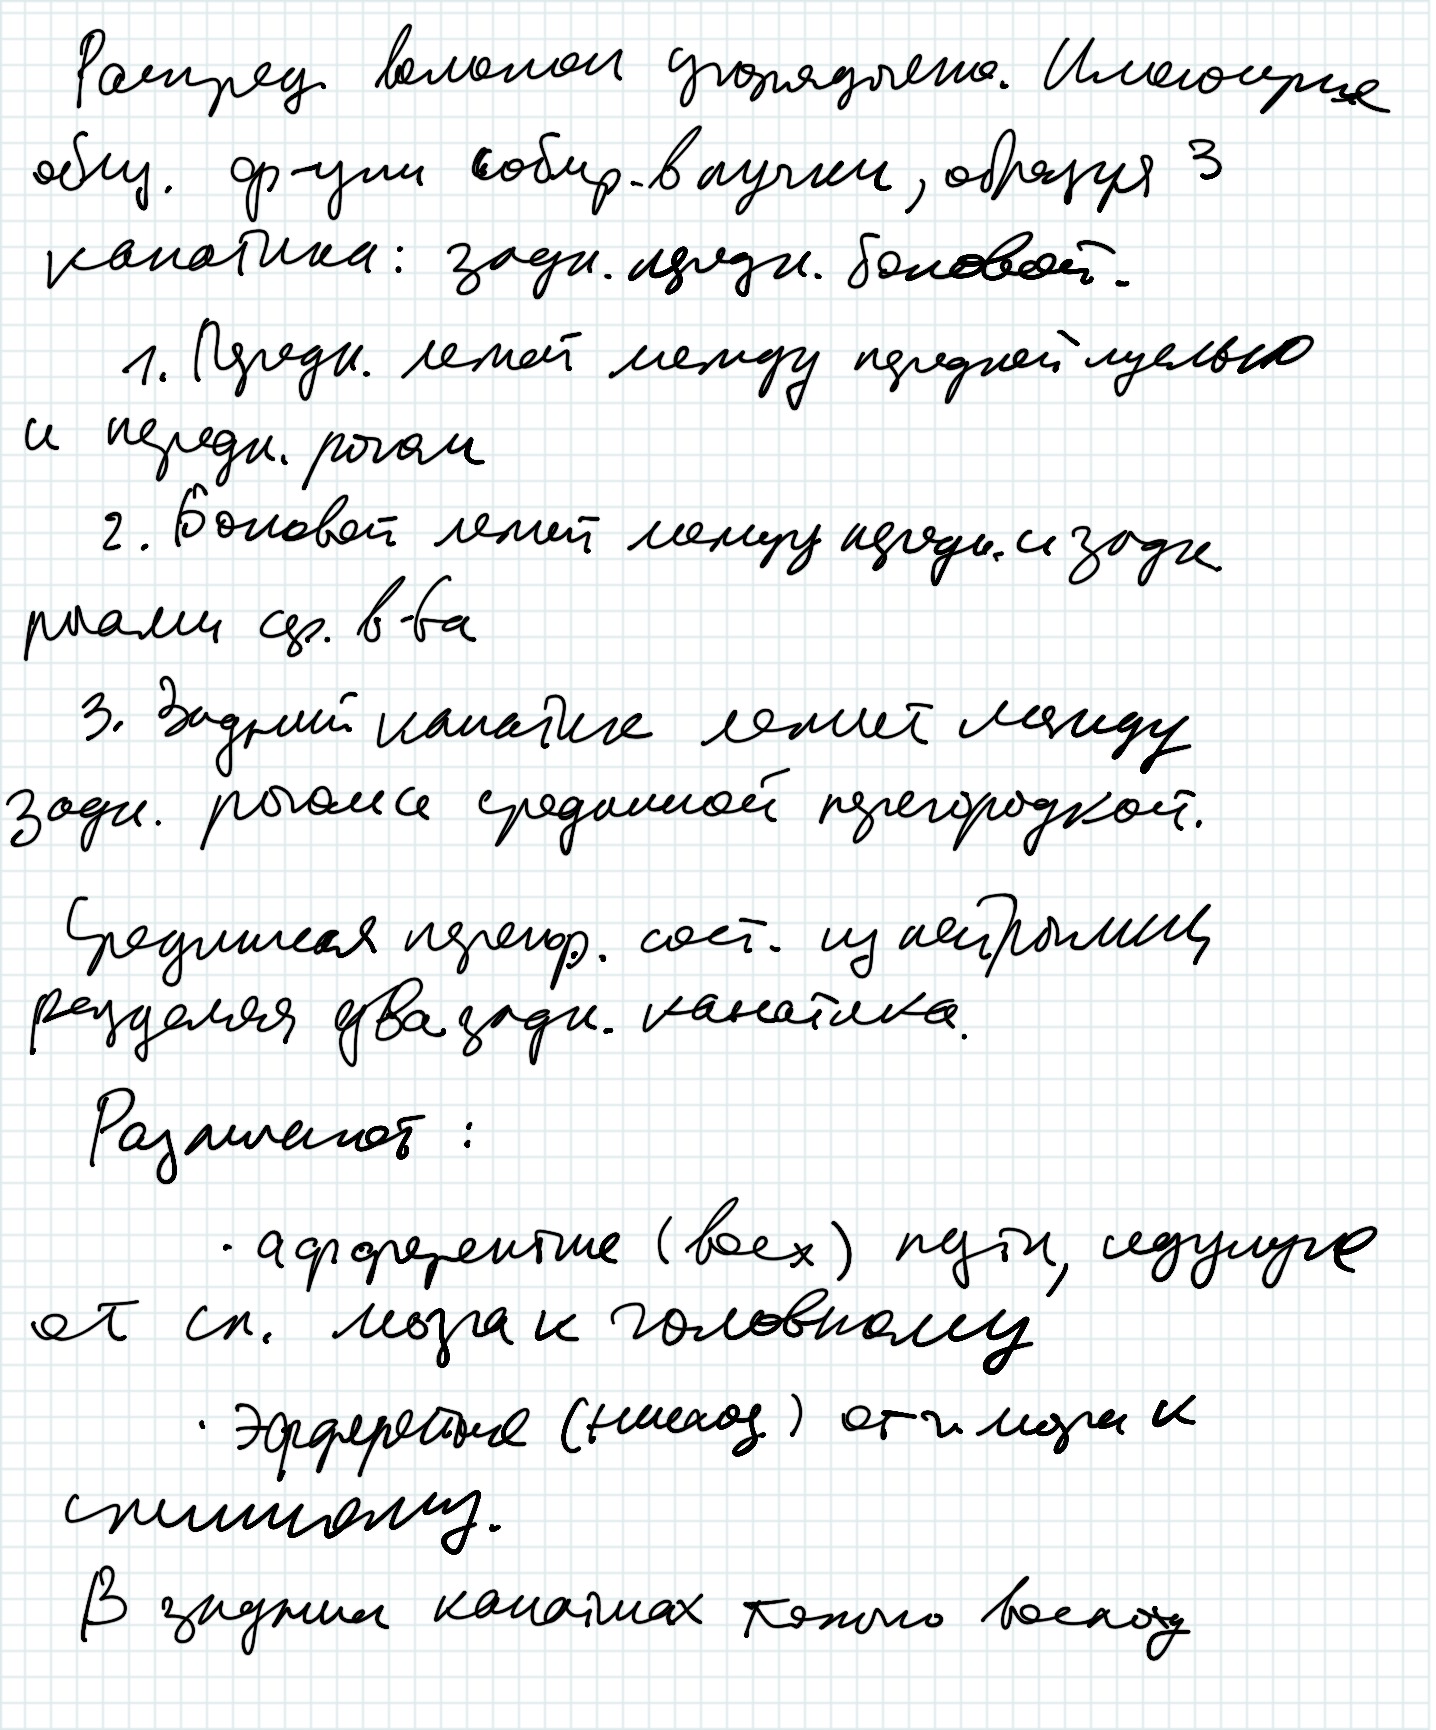 Распред. волокон упорядочено. Имеющие
общ. ф-ции собир. в пучки, образуя 3
канатика: задн. передн. боковой.
1. Передн. лежит между передней щелью
и передн. рогом
2. Боковой лежит между передн. и задн
рогами сер. в-ва
3. Задний канатик лежит между
задн. рогом и срединной перегородкой.
Срединная перегор. сост. из нейроглии,
разделяя два задн. канатика.
Различают:
· афферентные (восх) пути, идущие
от сп. мозга к головному
· эфферентные (нисход) от г. мозга к
спинному.
В задних канатиках только восход